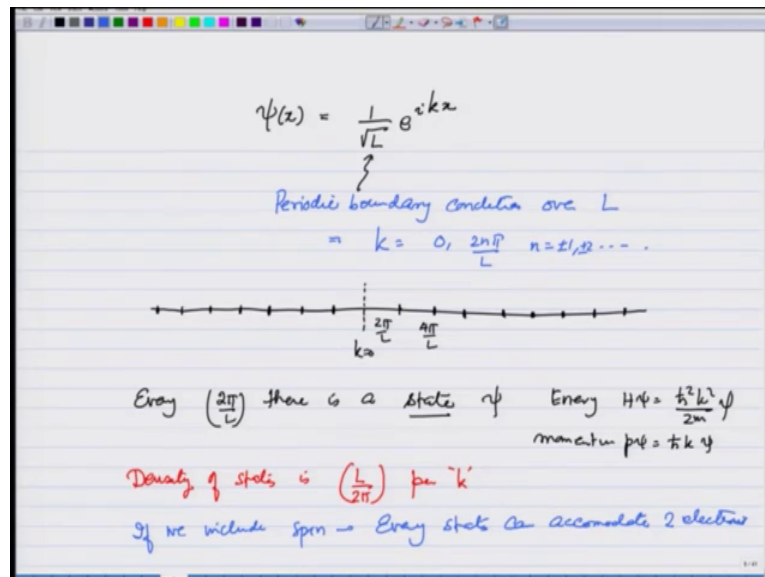 ψ(x) = 1/√L e^{ikx}
Periodic boundary condition ove L
= k = 0, 2nπ/L n = ±1, ±2 - - - .
2π/L 4π/L
k=0
Every (2π/L) there is a state ψ Energy Hψ = ħ²k²/2m ψ
momentum pψ = ħk ψ
Density of states is (L/2π) per "k"
If we include spin → Every state can accomodate 2 electrons